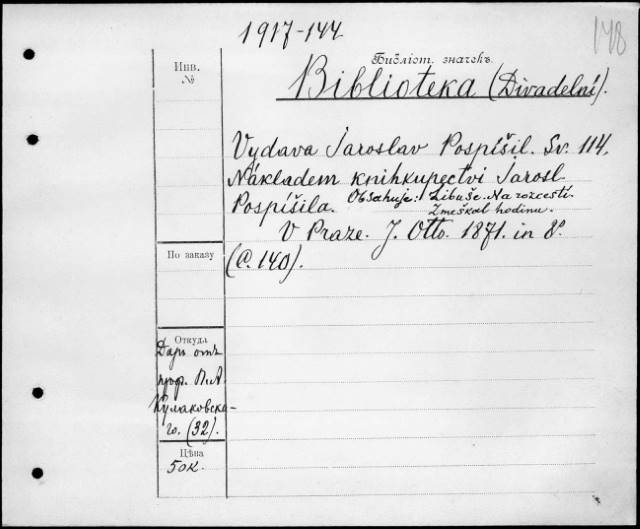 1917-144.
148
Библіот. значекъ
Инв.
№
Biblioteka (Divadelní).
Vydava Jaroslav Pospíšil. Sv. 114.
Nákladem knihkupectví Jarosl.
Pospíšila. Obsahuje: Libuše. Na rozcestí.
Zmeškal hodinu.
V Praze. J. Otto. 1871. in 8°.
По заказу
(C. 140).
Откуда
Даръ отъ
проф. П.А.
Кулаковска-
го. (32).
Цѣна
50к.